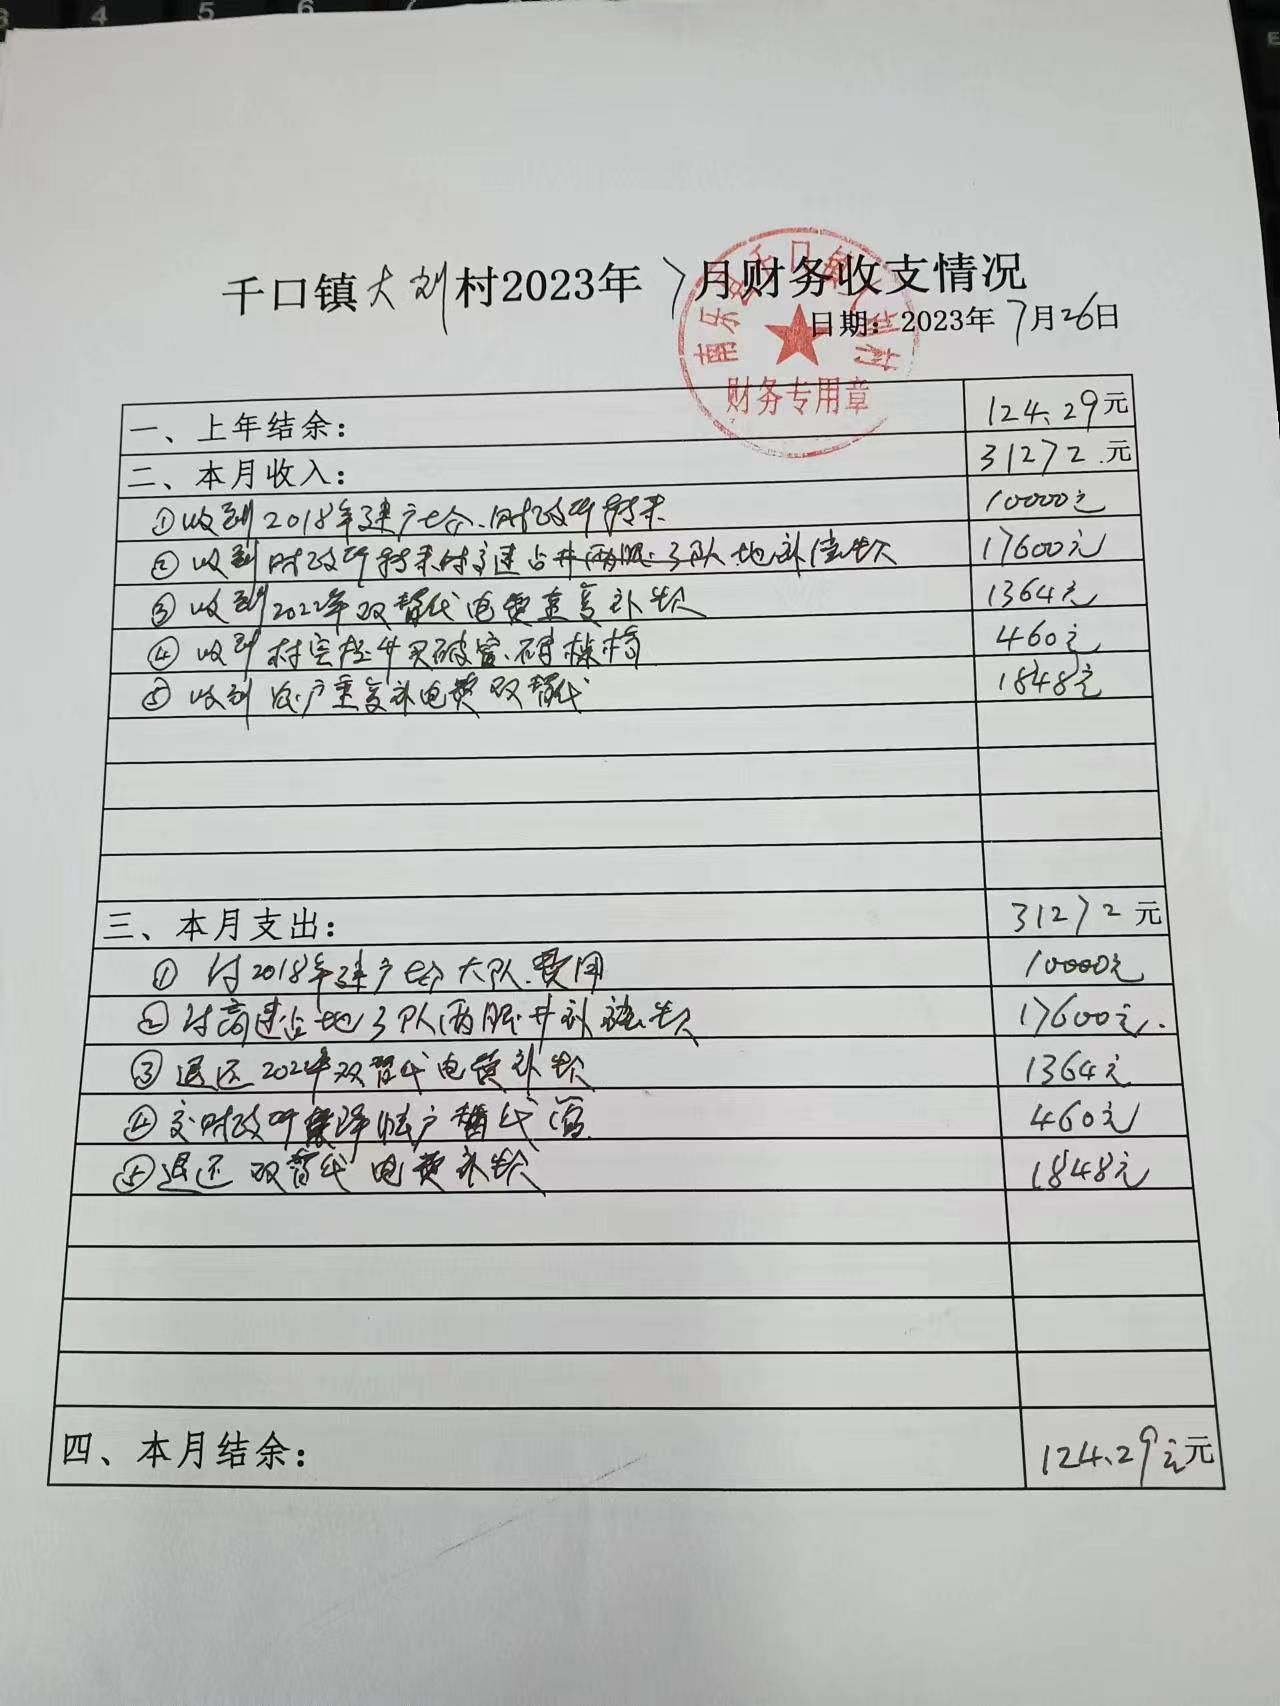 千口镇大刘村2023年7月财务收支情况
日期：2023年7月26日
南乐县千口镇大刘村
财务专用章
一、上年结余： 124.29元
二、本月收入： 31272.元
①收到2018年建户七合.财政所转来 10000元
②收到财政所转来村高速占井两眼3队地补偿款 17600元
③收到2022年双替代电费重复补款 1364元
④收到村 卖破 460元
⑤收到 户重复补电费双替代 1848元
三、本月支出： 31272元
①付2018年建户七合大队.费用 10000元
②付高速占地3队两眼井补 款 17600元.
③退还2022年双替代电费补款 1364元
④交财政所 户 460元
⑤退还双替代电费补款 1848元
四、本月结余： 124.29元元